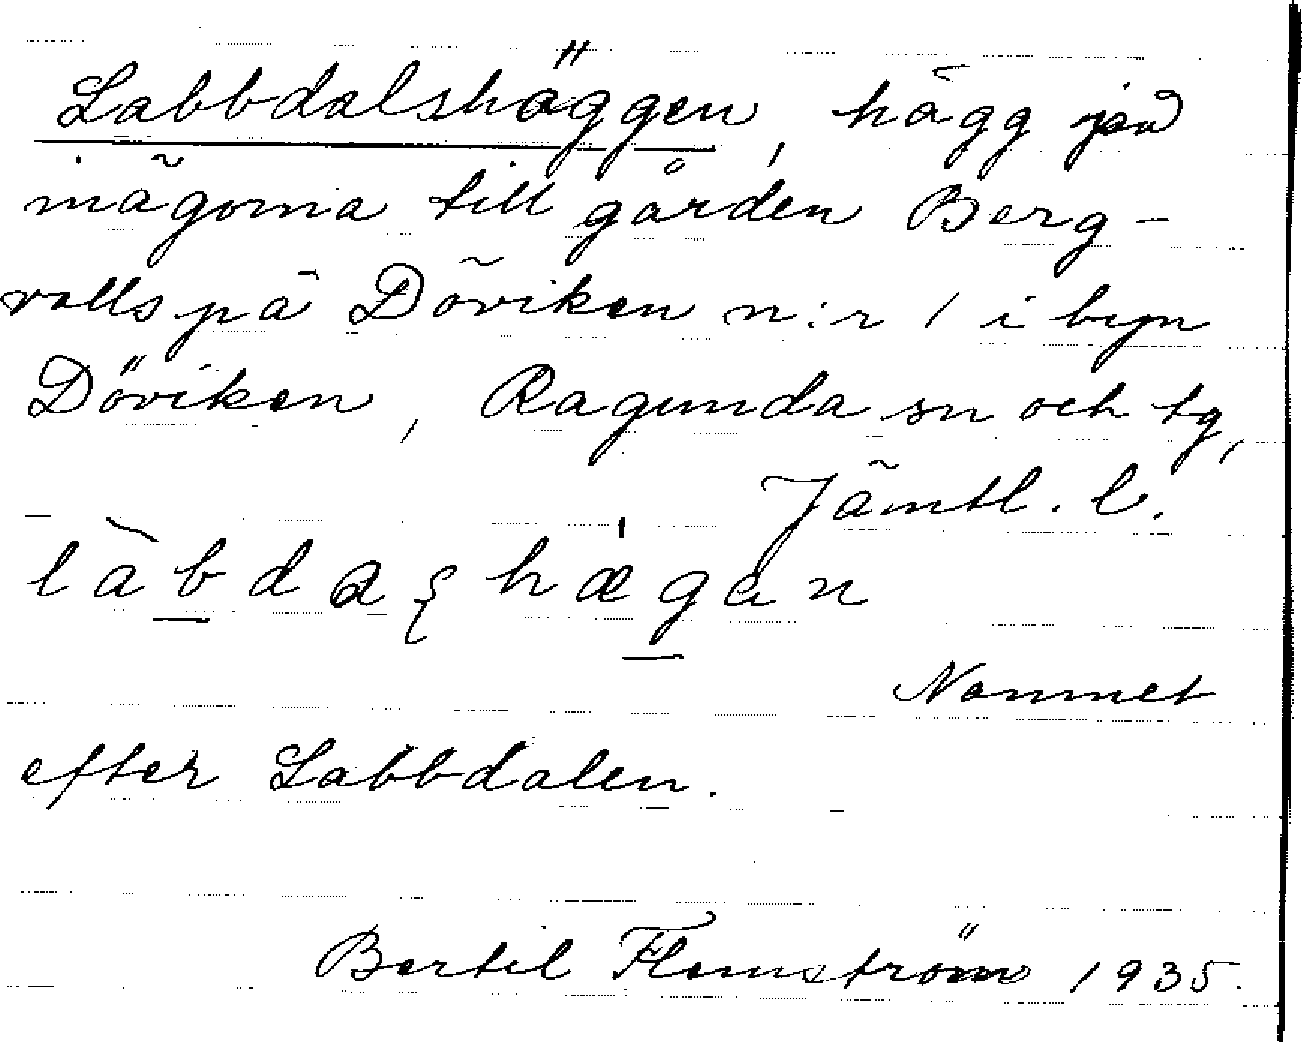 Labbdalshäggen, hägg på
inägorna till gården Berg-
valls på Döviken n:r 1 i byn
Döviken, Ragunda sn och tg,
Jämtl. l.
làbdaʂhægan
Namnet
efter Labbdalen.
Bertil Flemström 1935.